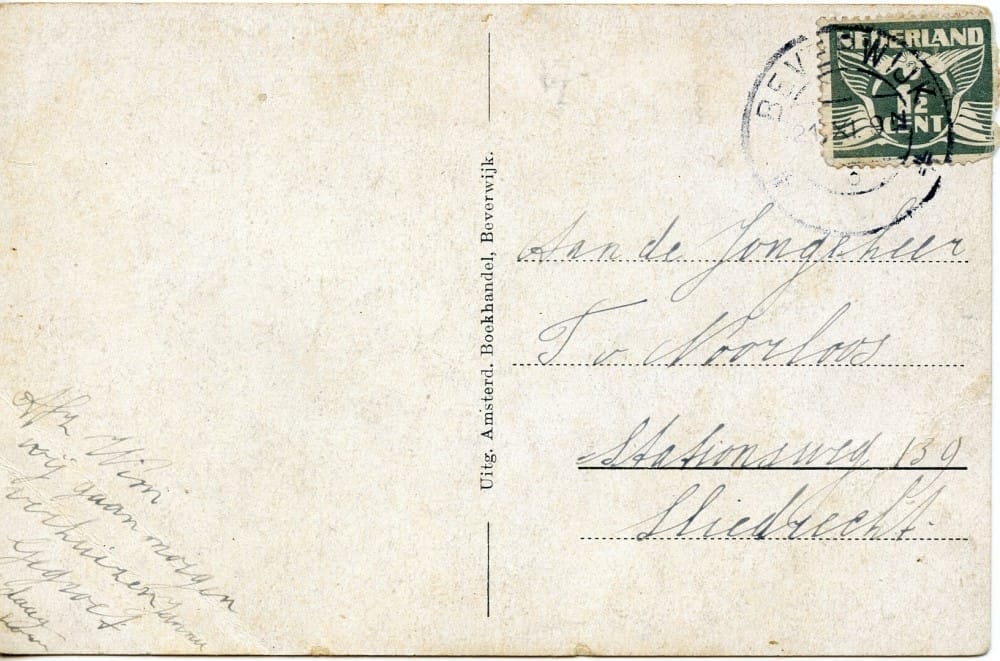 NEDERLAND
1½
CENT
BEVERWIJK
Uitg. Amsterd. Boekhandel, Beverwijk.
Aan de Jongeheer
T v Noorloos
Stationsweg 139
Sliedrecht.
Wim
wij gaan morgen
verhuizen
Gegroet